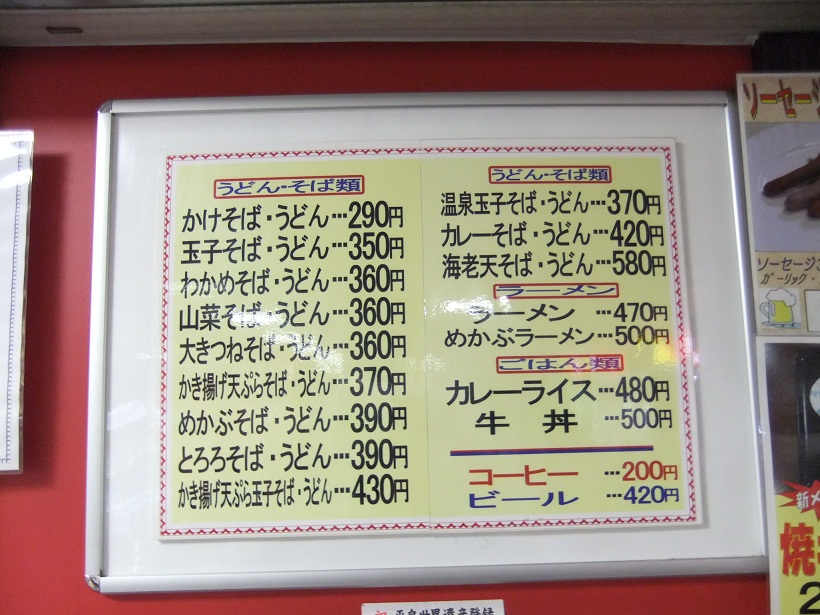 うどん・そば類
かけそば・うどん…290円
玉子そば・うどん…350円
わかめそば・うどん…360円
山菜そば・うどん…360円
大きつねそば・うどん…360円
かき揚げ天ぷらそば・うどん…370円
めかぶそば・うどん…390円
とろろそば・うどん…390円
かき揚げ天ぷら玉子そば・うどん…430円
うどん・そば類
温泉玉子そば・うどん…370円
カレーそば・うどん…420円
海老天そば・うどん…580円
ラーメン
ラーメン …470円
めかぶラーメン…500円
ごはん類
カレーライス…480円
牛 丼 …500円
コーヒー …200円
ビール …420円
ソーセージ
ソーセージ
ガーリック・
新メ
焼
2
平泉世界遺産登録